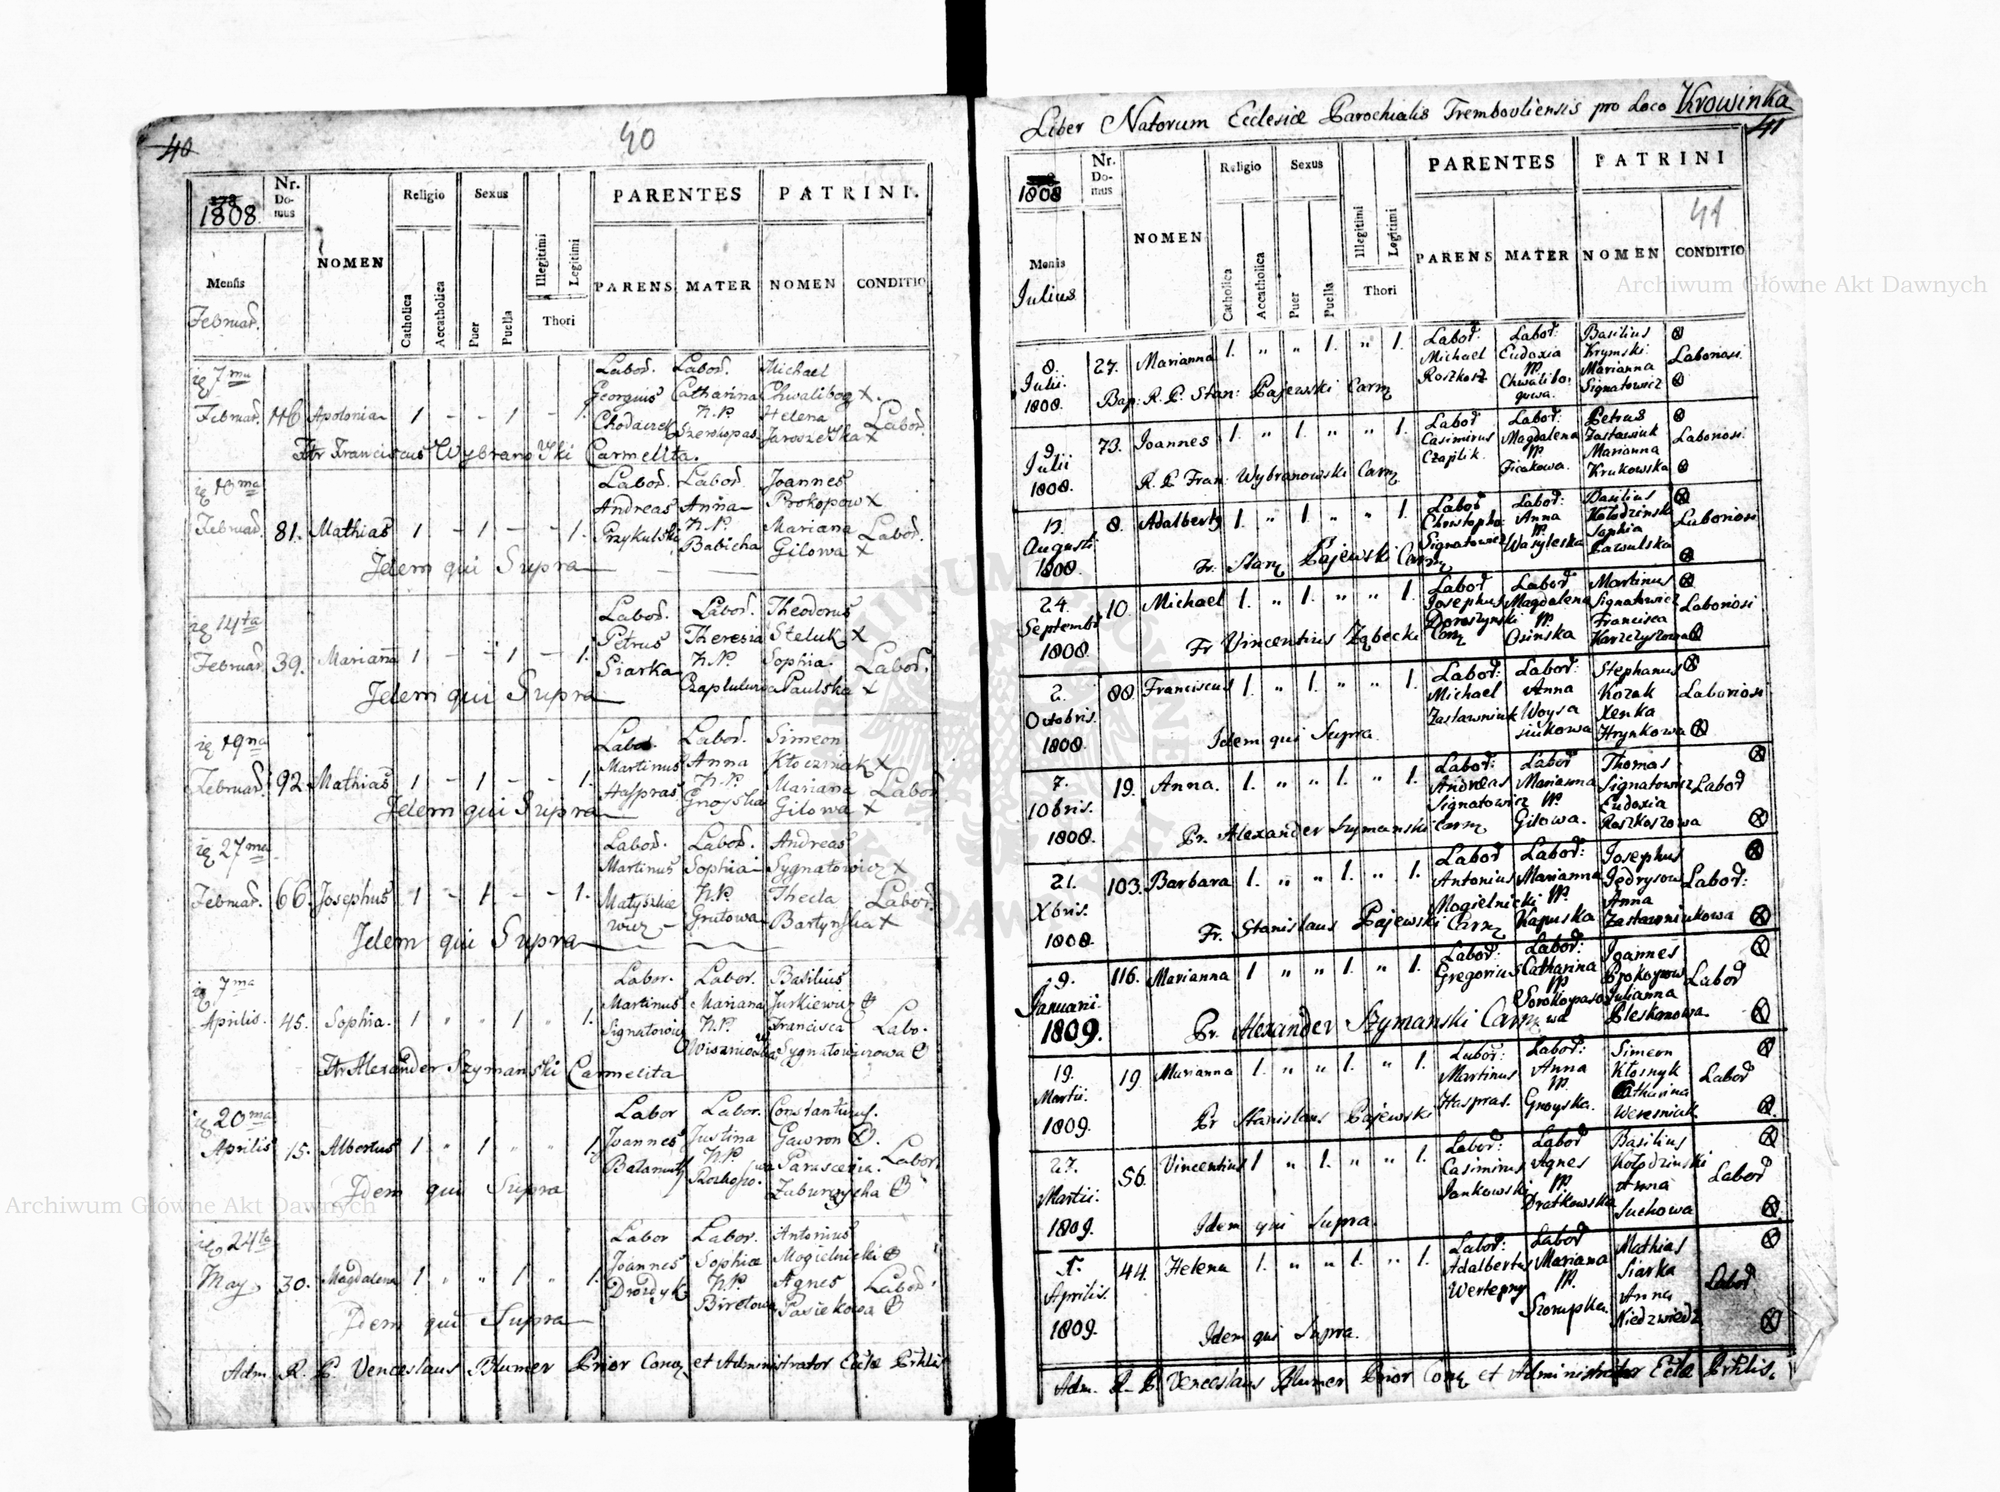 40
40
1808
Nr. Do- mus
NOMEN
Religio
Sexus
Illegitimi
Legitimi
PARENTES
PATRINI.
Mensis
Februar.
Catholica
Accatholica
Puer
Puella
Thori
PARENS
MATER
NOMEN
CONDITIO
Labor. Labor. Michael
7ma Georgius Catharina Chwalibog X.
Februar. 116 Apolonia 1 - - 1 - 1. Chodaczek N.P. Helena Labor.
Szerokopas. Jaroszewska X
Fr Franciscus Wybranowski Carmelita.
Labor. Labor. Joannes
10ma Andreas Anna Prokopow X
Februar. 81. Mathias 1 - 1 - - 1. Przykulski N.P. Mariana Labor.
Babicha Gilowa X
Idem qui Supra
Labor. Labor. Theodorus
14ta Petrus Theresia Steluk X
Februar. 39. Mariana 1 - - 1 - 1. Siarka N.P. Sophia. Labor.
Paulska X
Idem qui Supra
Labor. Labor. Simeon
19na Martinus Anna Kłoczniak X
Februar. 92. Mathias 1 - 1 - - 1. Haspras N.P. Mariana Labor.
Groyska Gilowa X
Idem qui Supra
Labor. Labor. Andreas
27ma Martinus Sophia Sygnatowicz X
Februar. 66. Josephus 1 - 1. - - 1. Matyszkie N.P. Thecla Labor.
wicz Grutowa Bartynska X
Idem qui Supra
Labor. Labor. Basilius
7ma Martinus Mariana Jurkiewicz
Aprilis. 45. Sophia. 1 " " 1 " 1. Signatowicz N.P. Francisca Labo.
Wiszniowska Sygnatowiczowa
Fr Alexander Szymanski Carmelita
Labor Labor. Constantinus.
20ma Joannes Justina Gawron
Aprilis 15. Albertus 1 " 1 " " 1. Balamut N.P. Parascevia. Labor
Zaburzycha
Idem qui Supra
Labor Labor. Antonius
24ta Joannes Sophia Mogielnicki
May 30. Magdalena 1 " " 1 " 1. Drozdyk N.P. Agnes Labor
Biretowa Pasiekowa
Idem qui Supra
Adm. R. P. Venceslaus Blumer Prior Conv et Administrator Eclæ Prhlis
Liber Natorum Ecclesiæ Parochialis Trembouliensis pro Loco Krowinka
41
1808
Nr. Do- mus
NOMEN
Religio
Sexus
Illegitimi
Legitimi
PARENTES
PATRINI
41
Mensis
Julius
Catholica
Accatholica
Puer
Puella
Thori
PARENS
MATER
NOMEN
CONDITIO
Labor. Labor: Basilius
8. 27. Marianna 1. " " 1. " 1. Michael Eudoxia Krymski Laboriosi
Julii. Roszkosz N. Marianna
1808. Chwalibo: Signatowicz
gowa.
Bap: R. P. Stan: Pajewski Carm
Labor Labor: Petrus
9 73. Joannes 1. " 1. " " 1. Casimirus Magdalena Zastawniuk Laboriosi
Julii Czajlik. N. Marianna
1808. Ficakowa. Krukowska
R. P. Fran: Wybranowski Carm
Labor Labor: Basilius
13. 8. Adalberty 1. " 1. " " 1. Christopho Anna Kołodzinski Laboriosi
Augusti Signatowicz N. Sophia
1808. Wasyleska Pawulska
Fr. Stany Pajewski Carm
Labor Labor Martinus
24. 10. Michael 1. " 1. " " 1. Josephus Magdalena Signatowicz Laboriosi
Septembr Doroszynski N. Francisca
1808. Osinska Karczyszowa
Fr Vincentius Ząbecki Carm
Labor: Labor: Stephanus
2. 88 Franciscus 1. " 1. " " 1. Michael Anna Kozak Laboriosi
Octobris. Zastawniuk Woysa Xenka
1808. siukowa Hrynkowa
Idem qui Supra.
Labor: Labor Thomas
7. 19. Anna. 1. " " 1. " 1. Andreas Marianna Signatowicz Labor
10bris. Signatowicz N. Eudoxia
1808. Gilowa. Roszkoszowa
Pr. Alexander Szymanski Carm
Labor Labor: Josephus
21. 103. Barbara 1. " " 1. " 1. Antonius Marianna Jędrysow Labor:
Xbris. Mogielnicki N. Anna
1808. Kapuska Zastawniukowa
Fr. Stanislaus Pajewski Carm
Labor: Labor: Joannes
9. 116. Marianna 1 " " 1. " 1. Gregorius Catharina Prokopow Labor
Januarii. N. Julianna
1809. Sorokopaso wa Pleskonowa.
Pr. Alexander Szymanski Carm
Labor: Labor: Simeon
19. 19. Marianna 1. " " 1. " 1. Martinus Anna Kłosnyk Labor
Martii. Haspras. N. Catharina
1809. Groyska. Weresniuk
Pr Stanislaus Pajewski
Labor: Labor Basilius
27. 56. Vincentius 1 " 1. " " 1. Casimirus Agnes Kołodzinski Labor
Martii. Jankowski N. Anna
1809. Dratkowska Suchowa
Idem qui Supra.
Labor: Labor Mathias
5. 44. Helena 1. " " 1. " 1. Adalbertus Mariana Siarka Labor
Aprilis. Wertepny N. Anna
1809. Skorupka. Niedzwiedz
Idem qui Supra.
Adm. R. P. Venceslaus Blumer Prior Conv et Administrator Eclæ Prhlis.
Archiwum Główne Akt Dawnych
Archiwum Główne Akt Dawnych
ARCHIWUM GŁÓWNE AKT DAWNYCH